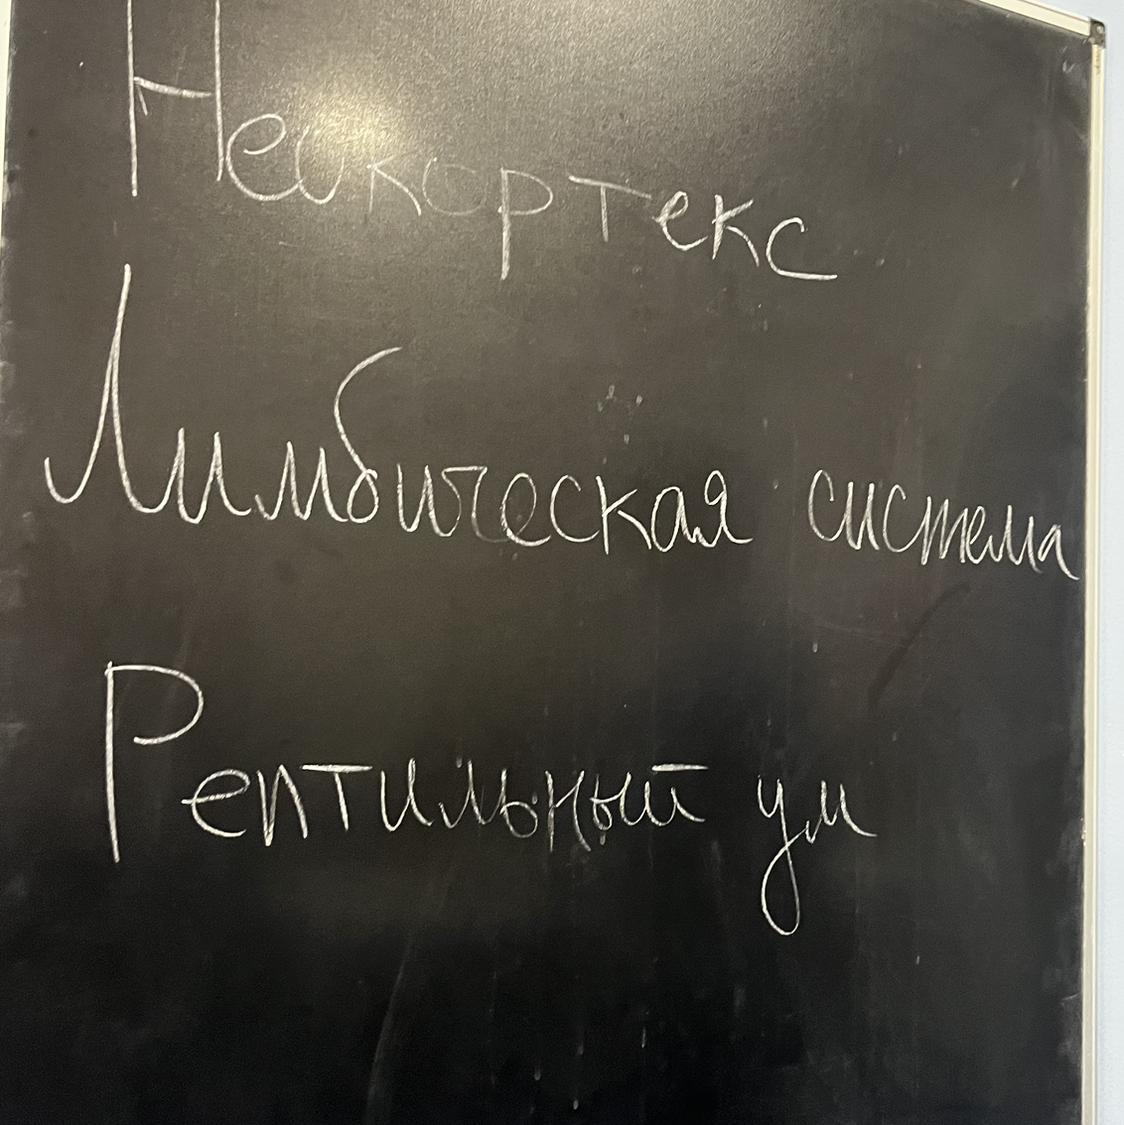 Неокортекс
Лимбическая система
Рептильный ум